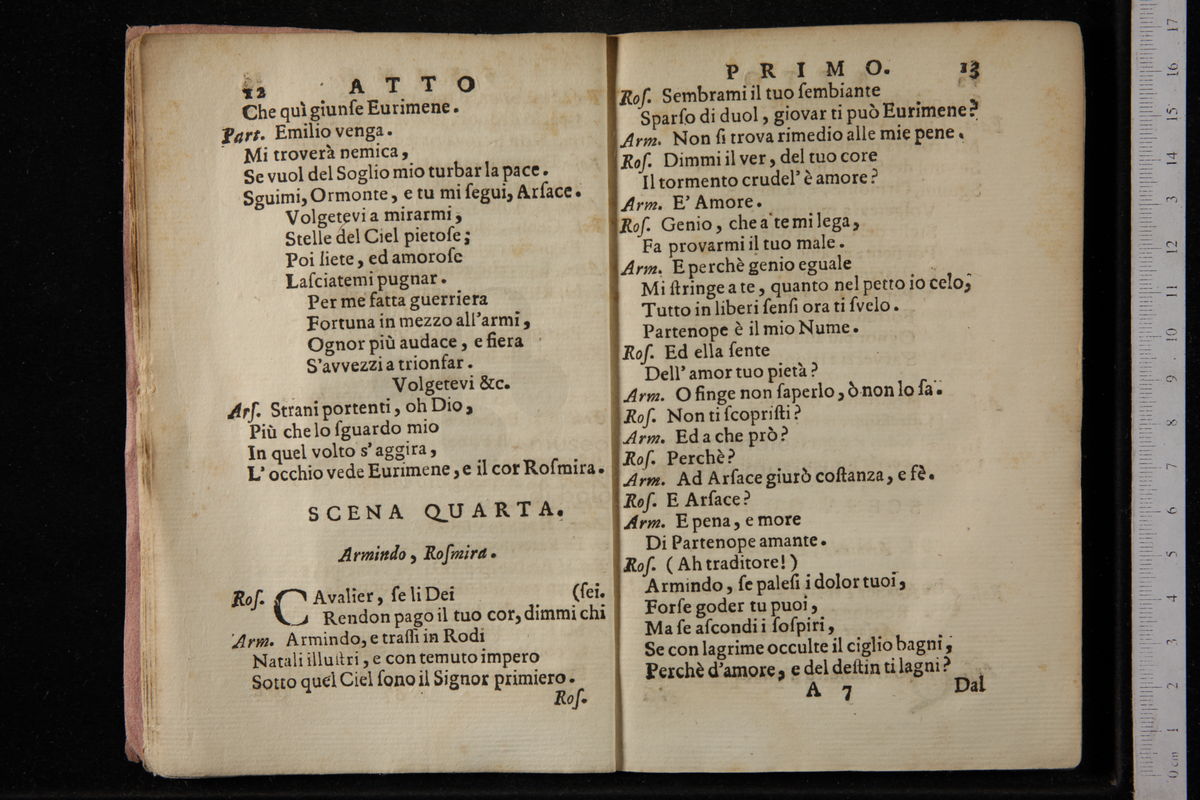 12 ATTO
Che quì giunſe Eurimene.
Part. Emilio venga.
Mi troverà nemica,
Se vuol del Soglio mio turbar la pace.
Sguimi, Ormonte, e tu mi ſegui, Arſace.
Volgetevi a mirarmi,
Stelle del Ciel pietoſe;
Poi liete, ed amoroſe
Laſciatemi pugnar.
Per me fatta guerriera
Fortuna in mezzo all'armi,
Ognor più audace, e fiera
S'avvezzi a trionfar.
Volgetevi &c.
Arſ. Strani portenti, oh Dio,
Più che lo ſguardo mio
In quel volto s'aggira,
L'occhio vede Eurimene, e il cor Roſmira.
SCENA QUARTA.
Armindo, Roſmira.
Roſ. CAvalier, ſe li Dei (ſei.
Rendon pago il tuo cor, dimmi chi
Arm. Armindo, e traſſi in Rodi
Natali illuſtri, e con temuto impero
Sotto quel Ciel ſono il Signor primiero.
Roſ.
PRIMO. 13
Roſ. Sembrami il tuo ſembiante
Sparſo di duol, giovar ti può Eurimene?
Arm. Non ſi trova rimedio alle mie pene.
Roſ. Dimmi il ver, del tuo core
Il tormento crudel' è amore?
Arm. E' Amore.
Roſ. Genio, che a te mi lega,
Fa provarmi il tuo male.
Arm. E perchè genio eguale
Mi ſtringe a te, quanto nel petto io celo,
Tutto in liberi ſenſi ora ti ſvelo.
Partenope è il mio Nume.
Roſ. Ed ella ſente
Dell' amor tuo pietà?
Arm. O finge non ſaperlo, ò non lo ſa.
Roſ. Non ti ſcopriſti?
Arm. Ed a che prò?
Roſ. Perchè?
Arm. Ad Arſace giurò coſtanza, e fè.
Roſ. E Arſace?
Arm. E pena, e more
Di Partenope amante.
Roſ. (Ah traditore!)
Armindo, ſe paleſi i dolor tuoi,
Forſe goder tu puoi,
Ma ſe aſcondi i ſoſpiri,
Se con lagrime occulte il ciglio bagni,
Perchè d'amore, e del deſtin ti lagni?
A 7 Dal
0 cm 1 2 3 4 5 6 7 8 9 10 11 12 3 14 15 16 17